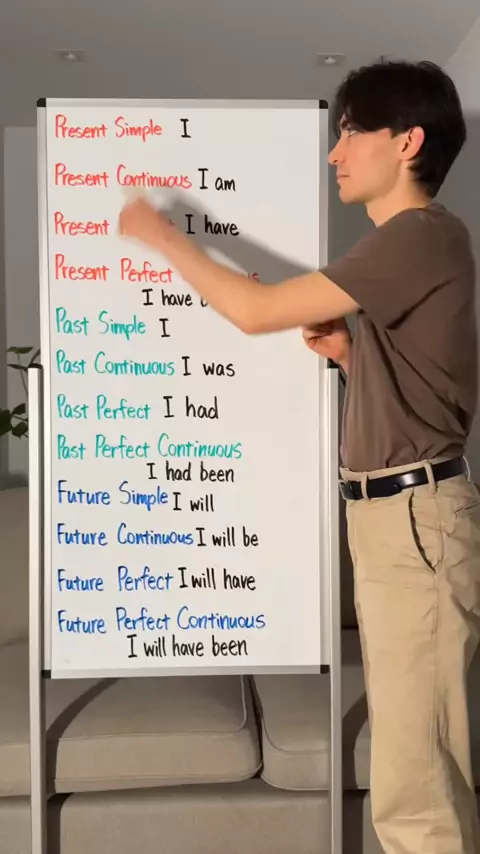 Present Simple I
Present Continuous I am
Present I have
Present Perfect
I have
Past Simple I
Past Continuous I was
Past Perfect I had
Past Perfect Continuous
I had been
Future Simple I will
Future Continuous I will be
Future Perfect I will have
Future Perfect Continuous
I will have been